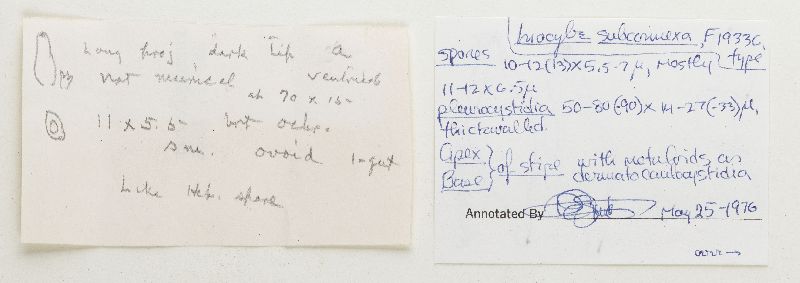 Long proj dark tip a
not ventricose
at 70 x 15-
11 x 5.5- brt ochr.
sm. ovoid 1-gut
Like Heb. spore
Inocybe subconnexa, F19336,
spores 10-12(13)x5,5-7µ, mostly type
11-12x6.5µ
pleurocystidia 50-80(-90)x14-27(-33)µ,
thickwalled.
Apex of stipe with metuloids as
Base dermatocaulocystidia
Annotated By May 25-1976
over→